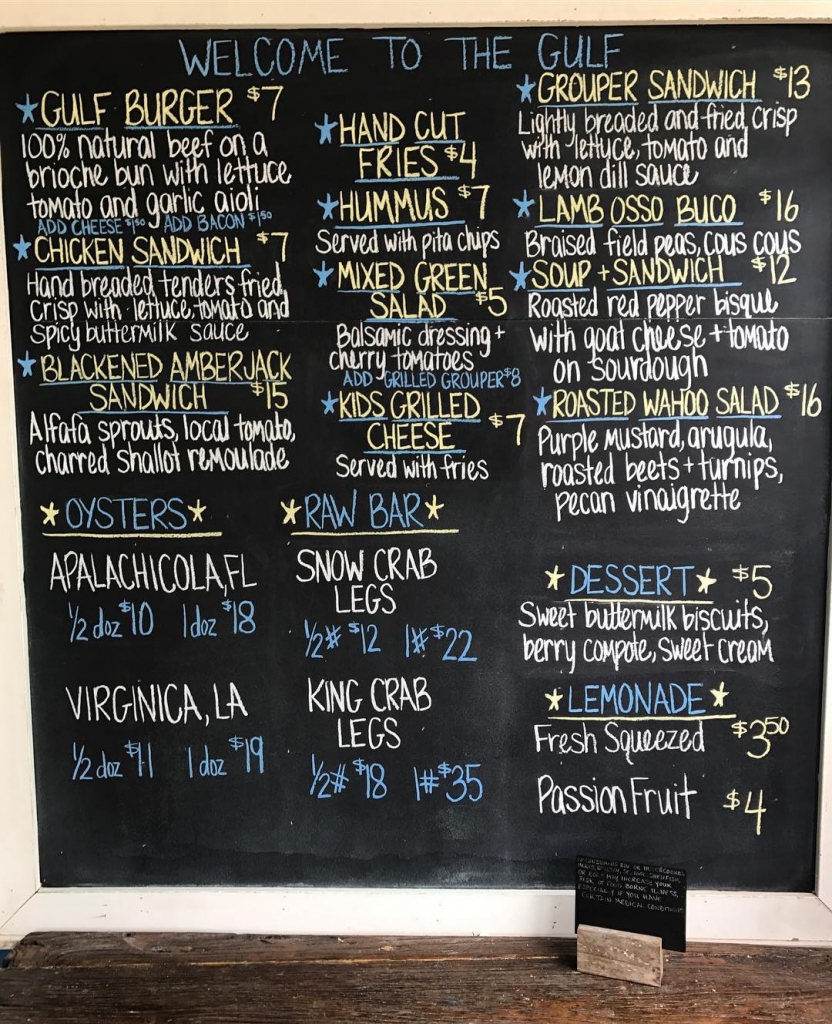 WELCOME TO THE GULF
GULF BURGER $7
100% natural beef on a
brioche bun with lettuce
tomato and garlic aioli
ADD CHEESE $1.50 ADD BACON $1.50
CHICKEN SANDWICH $7
Hand breaded tenders fried
crisp with lettuce, tomato and
spicy buttermilk sauce
BLACKENED AMBERJACK
SANDWICH $15
Alfafa sprouts, local tomato,
charred shallot remoulade
HAND CUT
FRIES $4
HUMMUS $7
Served with pita chips
MIXED GREEN
SALAD $5
Balsamic dressing +
cherry tomatoes
ADD GRILLED GROUPER $8
KIDS GRILLED
CHEESE $7
Served with fries
GROUPER SANDWICH $13
Lightly breaded and fried crisp
with lettuce, tomato and
lemon dill sauce
LAMB OSSO BUCO $16
Braised field peas, cous cous
SOUP + SANDWICH $12
Roasted red pepper bisque
with goat cheese + tomato
on sourdough
ROASTED WAHOO SALAD $16
Purple mustard, arugula,
roasted beets + turnips,
pecan vinaigrette
OYSTERS
APALACHICOLA, FL
1/2 doz $10 1 doz $18
VIRGINICA, LA
1/2 doz $11 1 doz $19
RAW BAR
SNOW CRAB
LEGS
1/2# $12 1# $22
KING CRAB
LEGS
1/2# $18 1# $35
DESSERT $5
Sweet buttermilk biscuits,
berry compote, sweet cream
LEMONADE
Fresh Squeezed $3.50
Passion Fruit $4
OR EGGS MAY INCREASE YOUR
RISK OF FOOD BORNE ILLNESS,
ESPECIALLY IF YOU HAVE
CERTAIN MEDICAL CONDITIONS